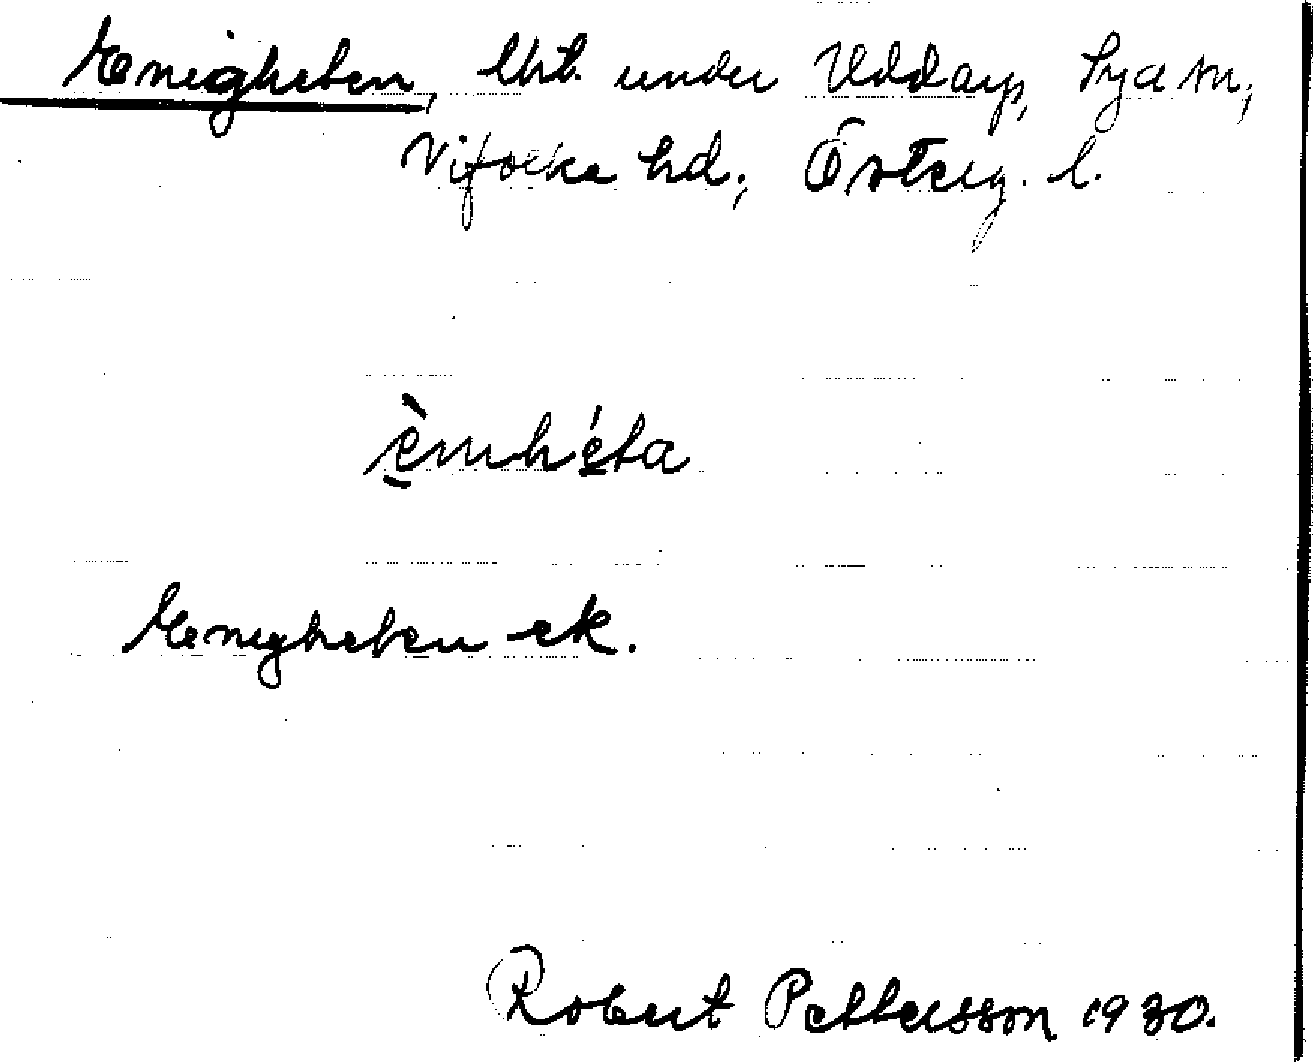 Enigheten, Utt. under Uddarp, Sya sn,
Vifolka hd; Österg. l.
è̱nnhé̱ta
Enigheten ek.
Robert Pettersson 1930.